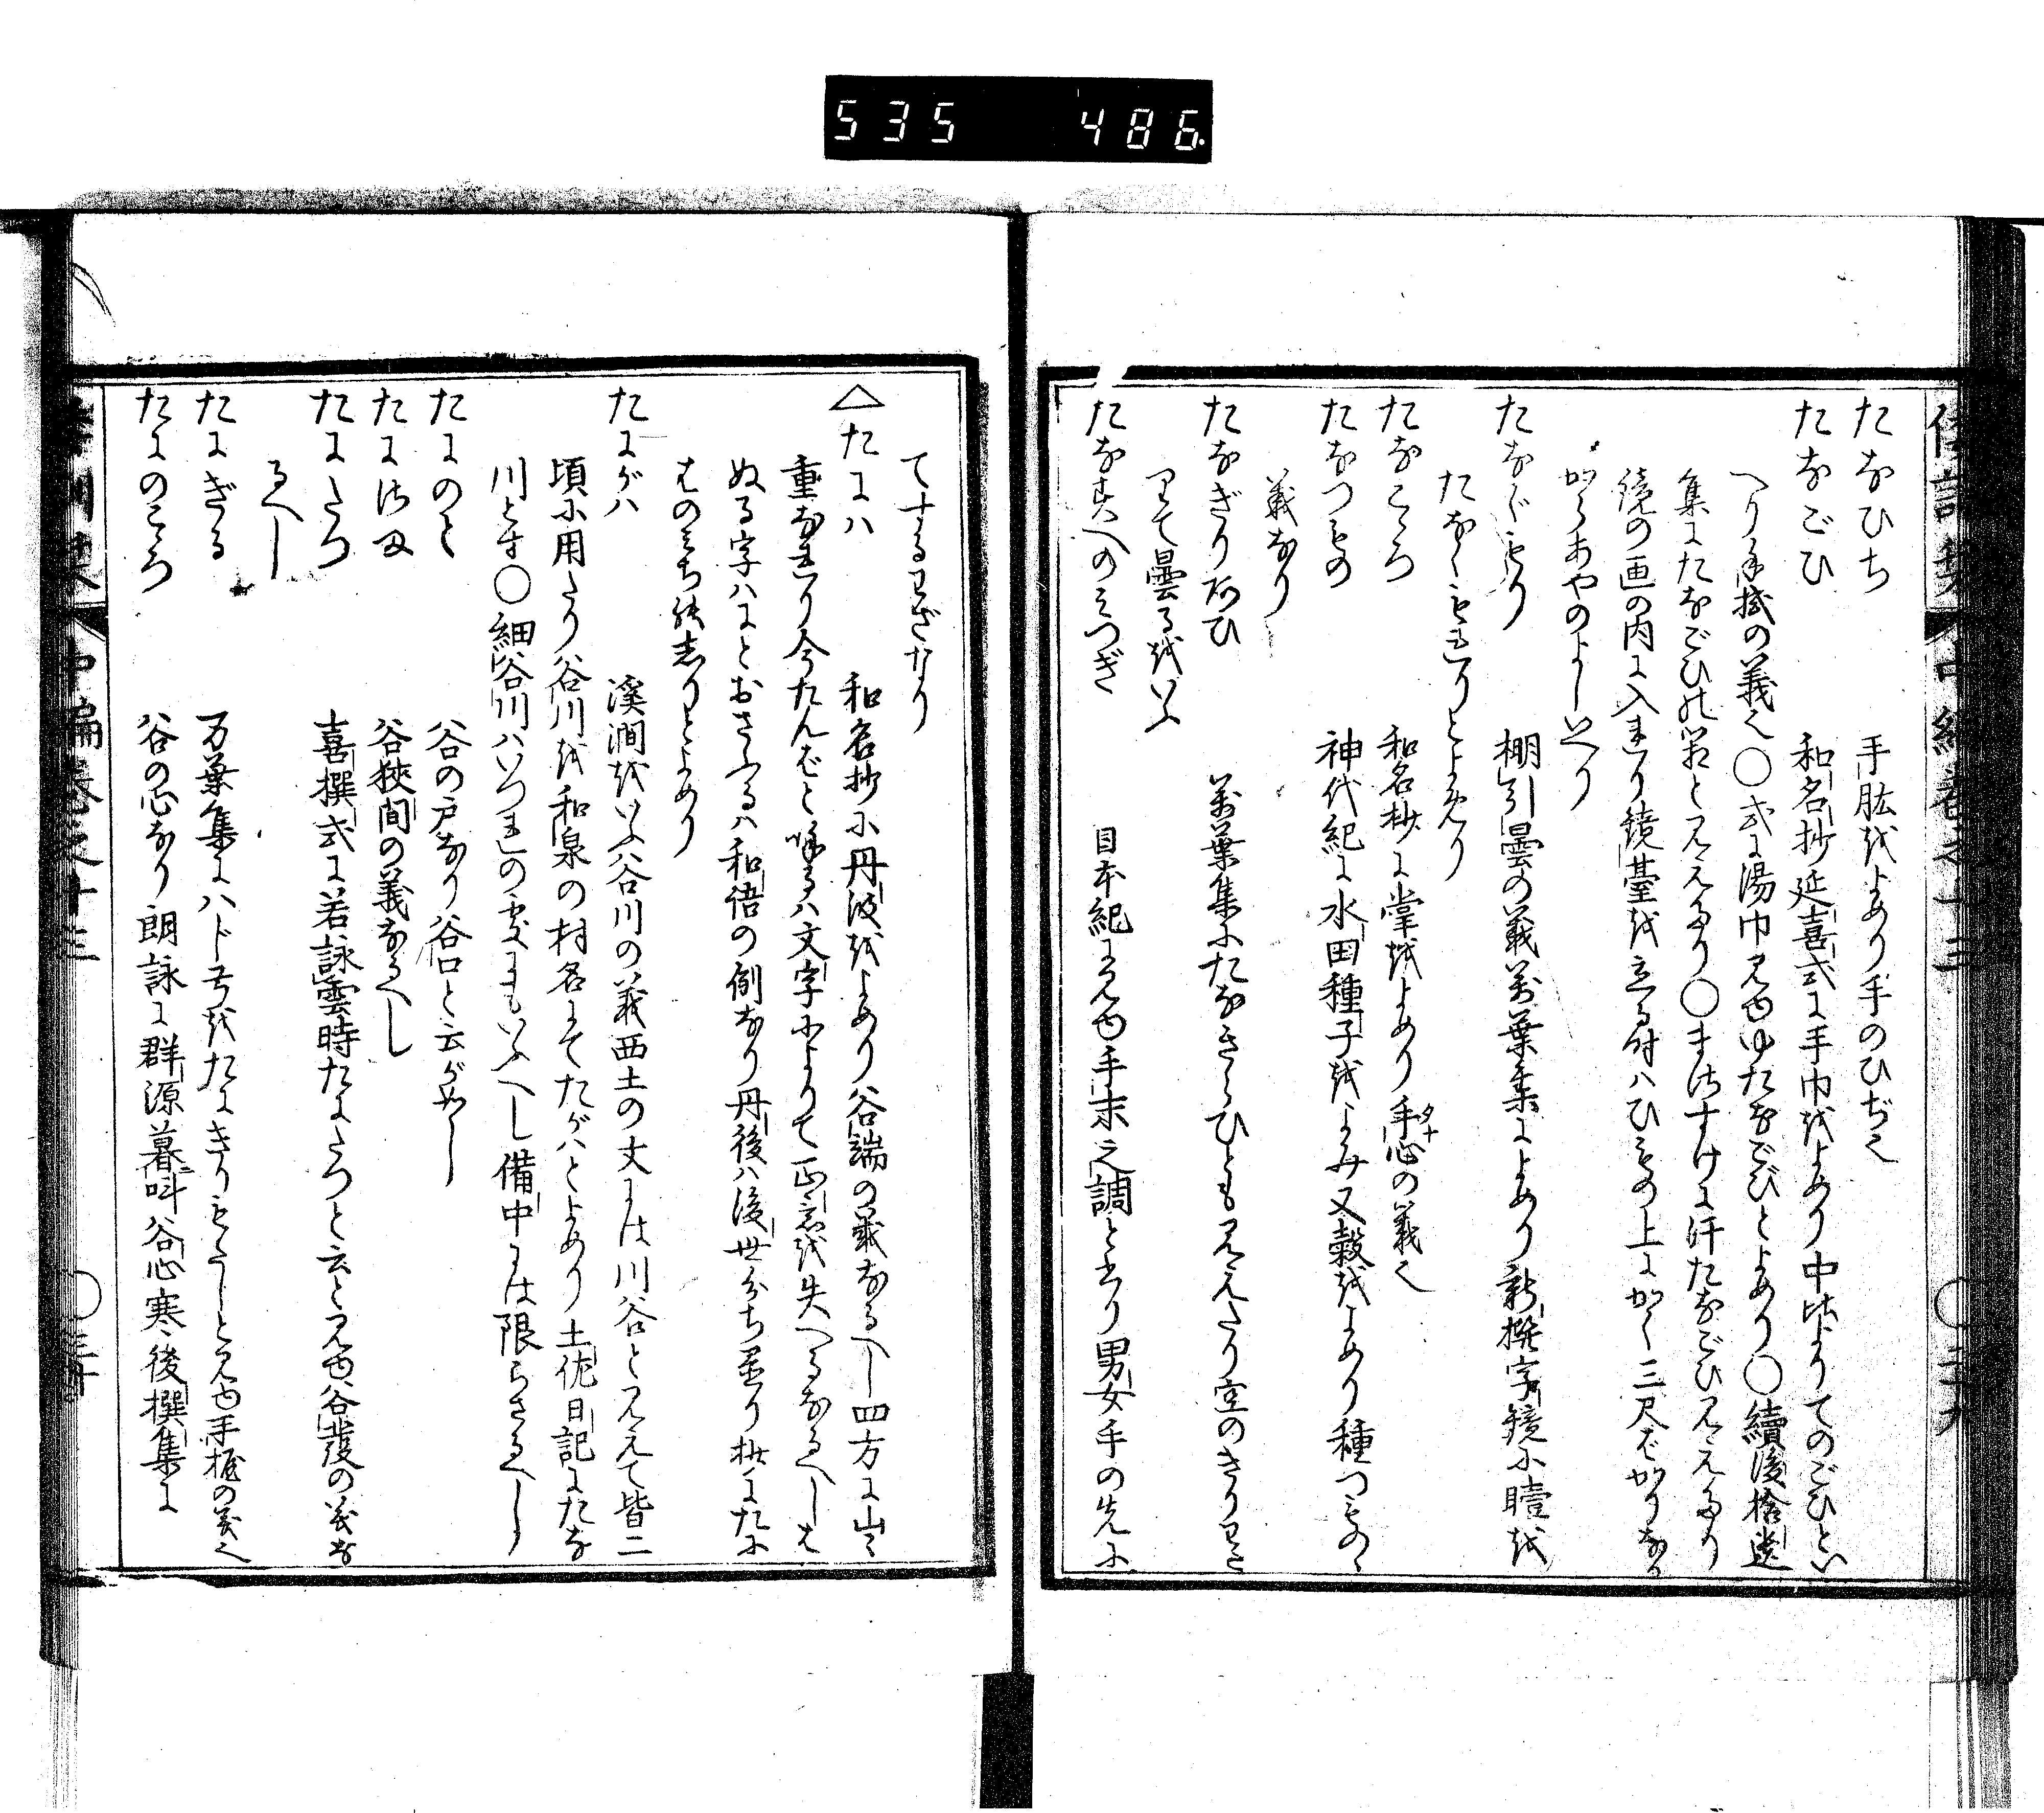 535 486
たなひぢ 手肱をよめり手のひぢ也
たなごひ 和名抄延喜式に手巾をよめり中比よりてのごひとい
へり手拭の義也〇式に湯巾見ゆゆたなごひとよめり〇續後拾遺
集にたなごひの箱と見えたり〇まさすけに汗たなごひ見えたり
鏡の画の内に入れり鏡臺を立る時はひもの上にかく三尺ばかりなる
からあやのよしいへり
たなぐもり 棚引曇の義萬葉集によめり新撰字鏡に曀を
たなくもれりとよめり
たなこゝろ 和名抄に掌をよめり手心の義也
たなつもの 神代紀に水田種子をよみ又穀をよめり種つものゝ
義なり
たなぎりあひ 萬葉集にたなきらひとも見えたり空のきりわた
りて曇るをいふ
たなすへのみつぎ 日本紀に見ゆ手末之調と書り男女手の先に
てするわざなり
△たには 和名抄に丹波をよめり谷端の義なるへし四方に山々
重なれり今たんばと唱るは文字によりて正意を失へるなるへしは
ぬる字はにとおさふるは和語の例なり丹後は後世分ち置り拄にたに
はのみち能志りとよめり
たにがは 溪澗をいふ谷川の義西土の文には川谷と見えて皆二
頃に用たり谷川を和泉の村名にてたがはとよめり土佐日記にたな
川とす〇細谷川はいつれの處にもいふへし備中には限らさるへし
たにのと 谷の戸なり谷口と云が如し
たにはさま 谷狹間の義なるへし
たにたつ 喜撰式に若詠雲時たにたつと云と見ゆ谷發の義な
るへし
たにぎる 万葉集にハト弓をたにきりもたしと見ゆ手握の義也
たにのこゝろ 谷の心なり朗詠に群源暮叫谷心寒後撰集に
中編巻之十三